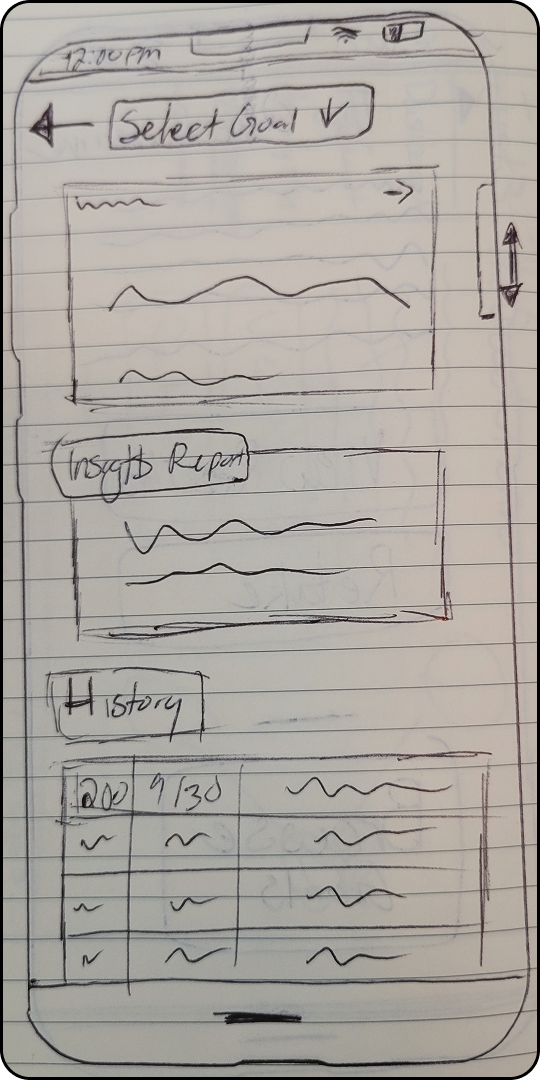 12:00 PM
Select Goal
Insights Report
History
200 9/30